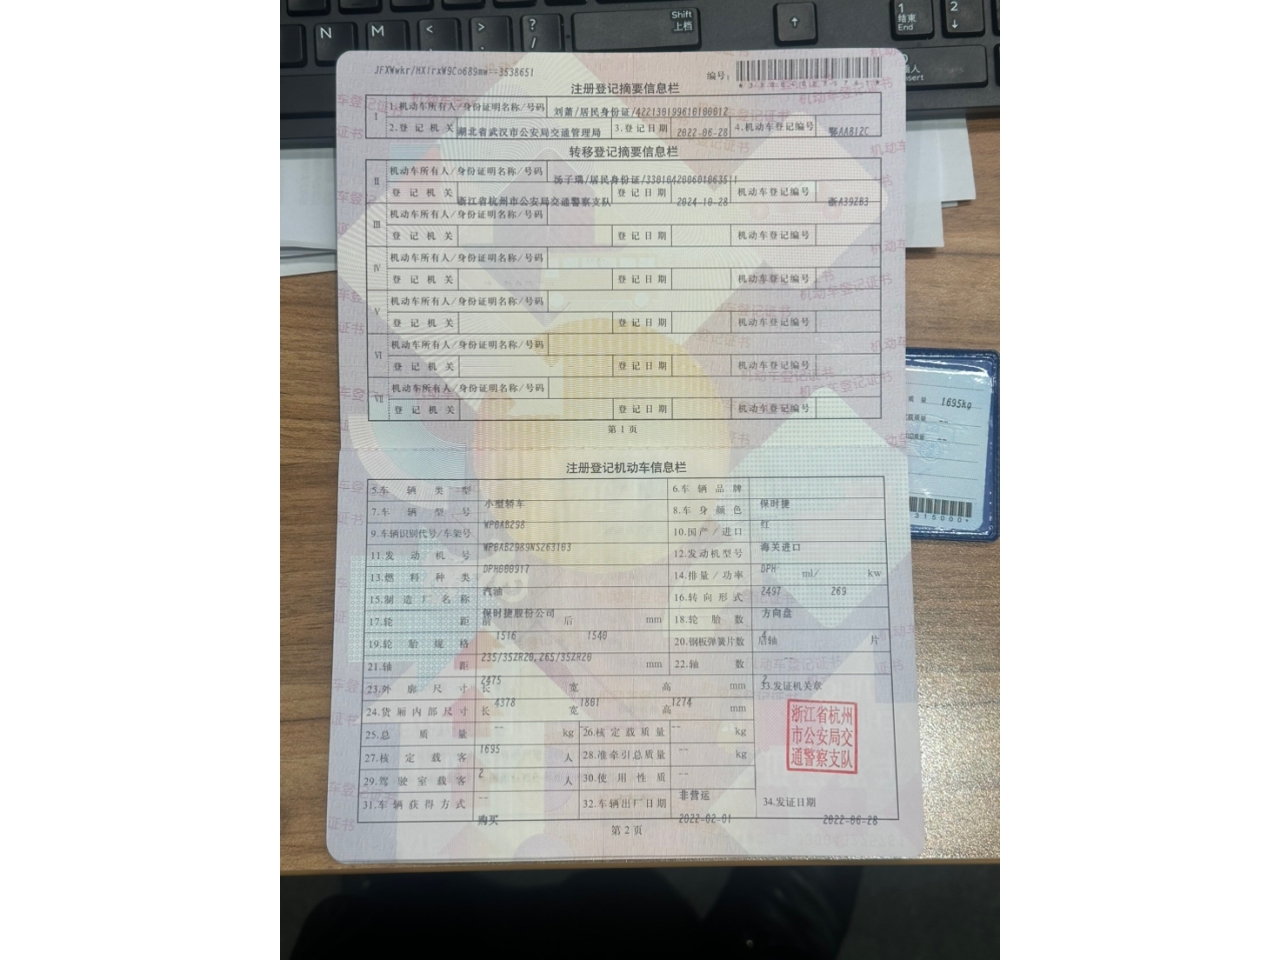 N M < > ? / Shift 上档 ↑ 1 结束 End 2 ↓
JFXWwkr/HXlrxW9Co689mw==3538651
编号:
注册登记摘要信息栏
I 1.机动车所有人/身份证明名称/号码 刘萧/居民身份证/422130199610100012
2.登记机关 湖北省武汉市公安局交通管理局 3.登记日期 2022-06-28 4.机动车登记编号 鄂AA812C
转移登记摘要信息栏
II 机动车所有人/身份证明名称/号码 汤子璐/居民身份证
登记机关 浙江省杭州市公安局交通警察支队 登记日期 2024-10-28 机动车登记编号 浙A39ZB3
III 机动车所有人/身份证明名称/号码
登记机关 登记日期 机动车登记编号
IV 机动车所有人/身份证明名称/号码
登记机关 登记日期 机动车登记编号
V 机动车所有人/身份证明名称/号码
登记机关 登记日期 机动车登记编号
VI 机动车所有人/身份证明名称/号码
登记机关 登记日期 机动车登记编号
VII 机动车所有人/身份证明名称/号码
登记机关 登记日期 机动车登记编号
第1页
注册登记机动车信息栏
5.车辆类型 小型轿车 6.车辆品牌 保时捷
7.车辆型号 WP0AB298 8.车身颜色 红
9.车辆识别代号/车架号 WP0AB2989NS263103 10.国产/进口 海关进口
11.发动机号 DPH000917 12.发动机型号 DPH
13.燃料种类 汽油 14.排量/功率 2497 ml/ 269 kw
15.制造厂名称 保时捷股份公司 16.转向形式 方向盘
17.轮距 前 1516 后 1540 mm 18.轮胎数 4
19.轮胎规格 235/35ZR20,265/35ZR20 20.钢板弹簧片数 后轴 片
21.轴距 2475 mm 22.轴数 2
23.外廓尺寸 长 4378 宽 1801 高 1274 mm 33.发证机关章
24.货厢内部尺寸 长 -- 宽 高 -- mm
浙江省杭州
市公安局交
通警察支队
25.总质量 1695 kg 26.核定载质量 -- kg
27.核定载客 2 人 28.准牵引总质量 -- kg
29.驾驶室载客 -- 人 30.使用性质 非营运
31.车辆获得方式 购买 32.车辆出厂日期 2022-02-01 34.发证日期 2022-06-28
第2页
1695kg